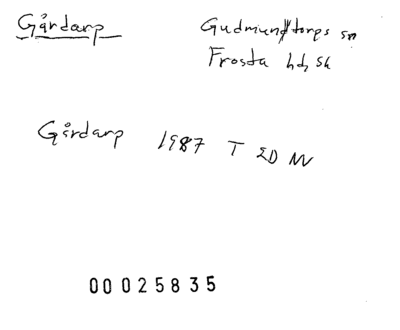 Gårdarp
Gudmundtorps sn
Frosta hd, Sk
Gårdarp 1987 T 2D NV
00025835